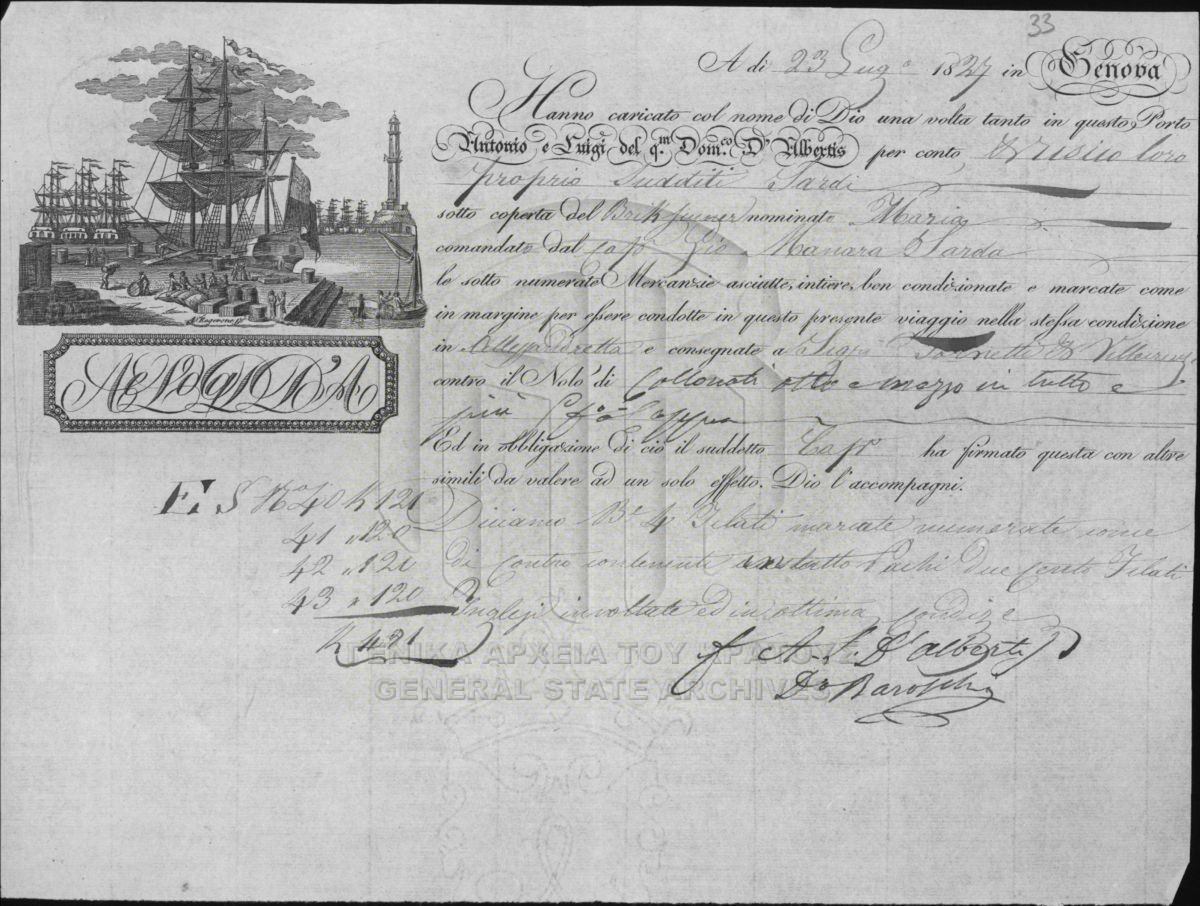 33
A di 23 Lug.o 1827 in Genova
Hanno caricato col nome di Dio una volta tanto in questo Porto
Antonio e Luigi del q.m Dom.co D'Albertis per conto, e risico loro
proprio Sudditi Sardi
sotto coperta del Brik nominato Maria
comandato dal Cap.n Gio Manara Sardo
le sotto numerate Mercanzie asciutte, intiere, ben condizionate e marcate come
in margine per essere condotte in questo presente viaggio nella stessa condizione
in Allessandretta e consegnate a
contro il Nolo di Collonati otto e mezzo in tutto e
più
Ed in obbligazione di ciò il suddetto Cap.n ha firmato questa con altre
simili da valere ad un solo effetto. Dio l'accompagni.
Diciamo B.e 4 Filati marcate numerate come
di contro contenenti in tutto Pachi due cento Filati
Inglesi involtate ed in ottima condiz.e
f A. L. D'Albertis
A. Ragerone
A E L D'A
E. S N.o 40 K 121
41 " 120
42 " 120
43 " 120
K 421
ΓΕΝΙΚΑ ΑΡΧΕΙΑ ΤΟΥ ΚΡΑΤΟΥΣ
GENERAL STATE ARCHIVES